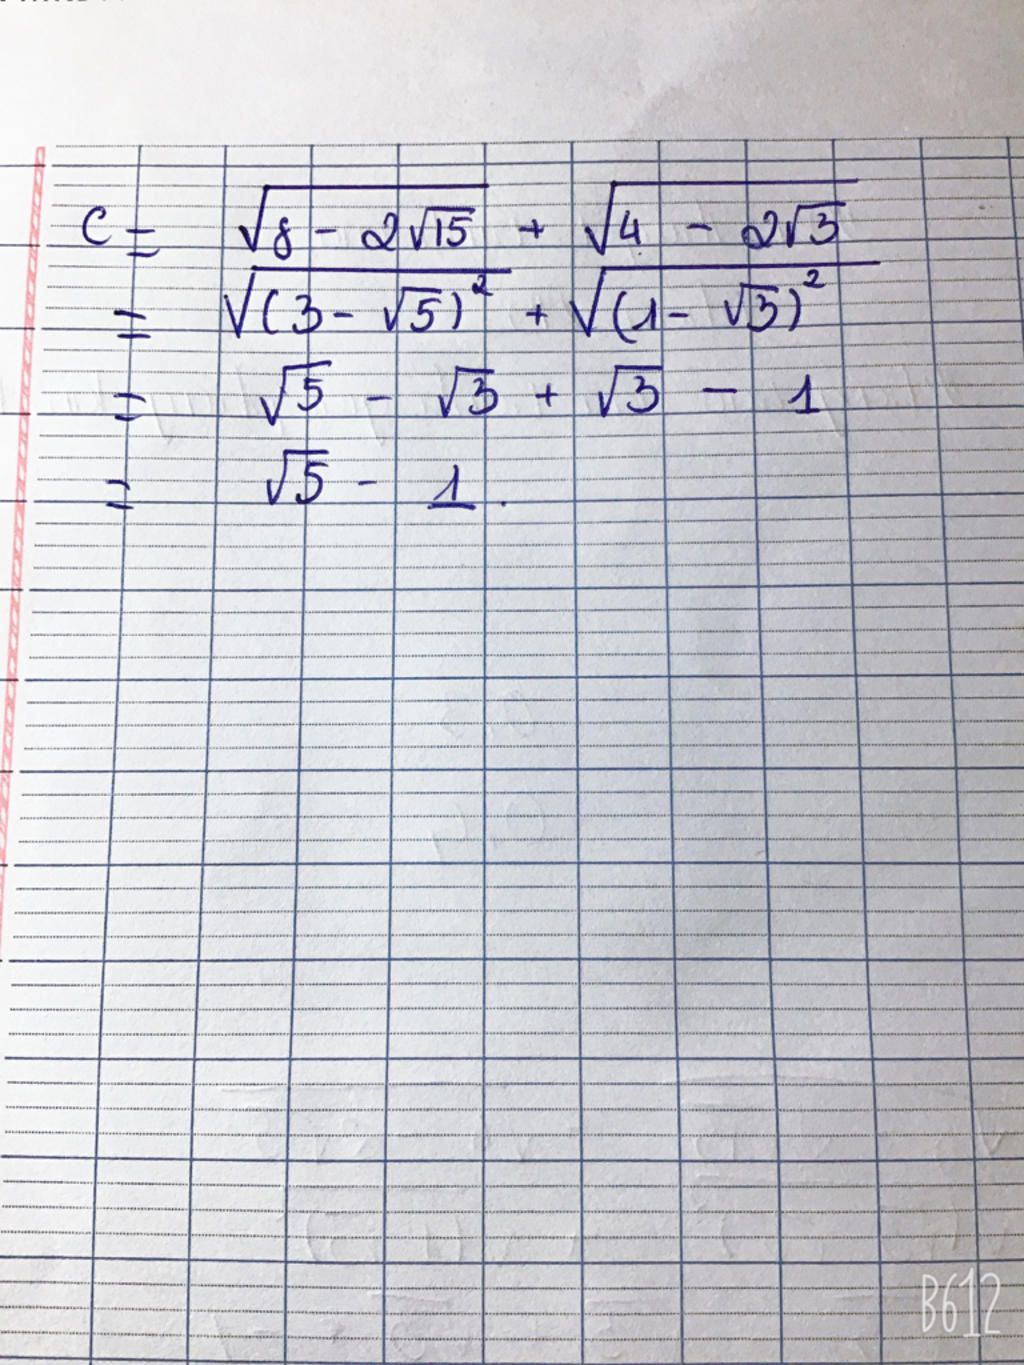 C = √(8 - 2√15) + √(4 - 2√3)
= √((3 - √5)²) + √((1 - √3)²)
= √5 - √3 + √3 - 1
= √5 - 1.
B612